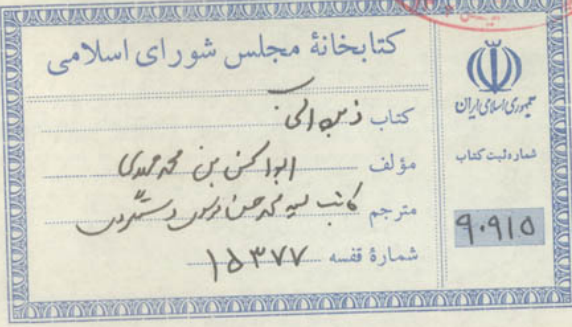 کتابخانهٔ مجلس شورای اسلامی
کتاب
مؤلف ابوالحسن بن محمد مهدی
مترجم کاتب سید محمد حسن
شمارهٔ قفسه ۱۵۳۷۷
جمهوری اسلامی ایران
شماره ثبت کتاب
۹۰۹۱۵